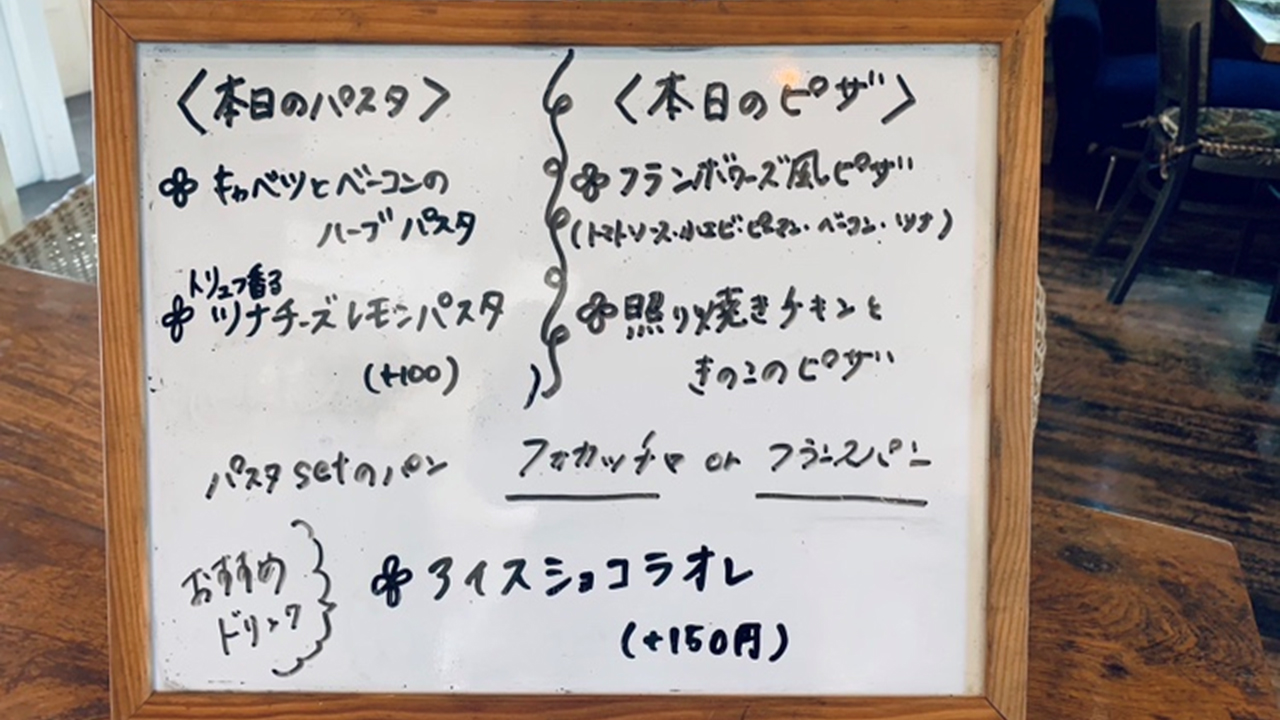 〈本日のパスタ〉
キャベツとベーコンの
ハーブパスタ
トリュフ香る
ツナチーズレモンパスタ
(+100)
〈本日のピザ〉
フランボワーズ風ピザ
(トマトソース・小エビ・ピーマン・ベーコン・ツナ)
照り焼きチキンと
きのこのピザ
パスタsetのパン フォカッチャ or フランスパン
おすすめ
ドリンク
アイスショコラオレ
(+150円)